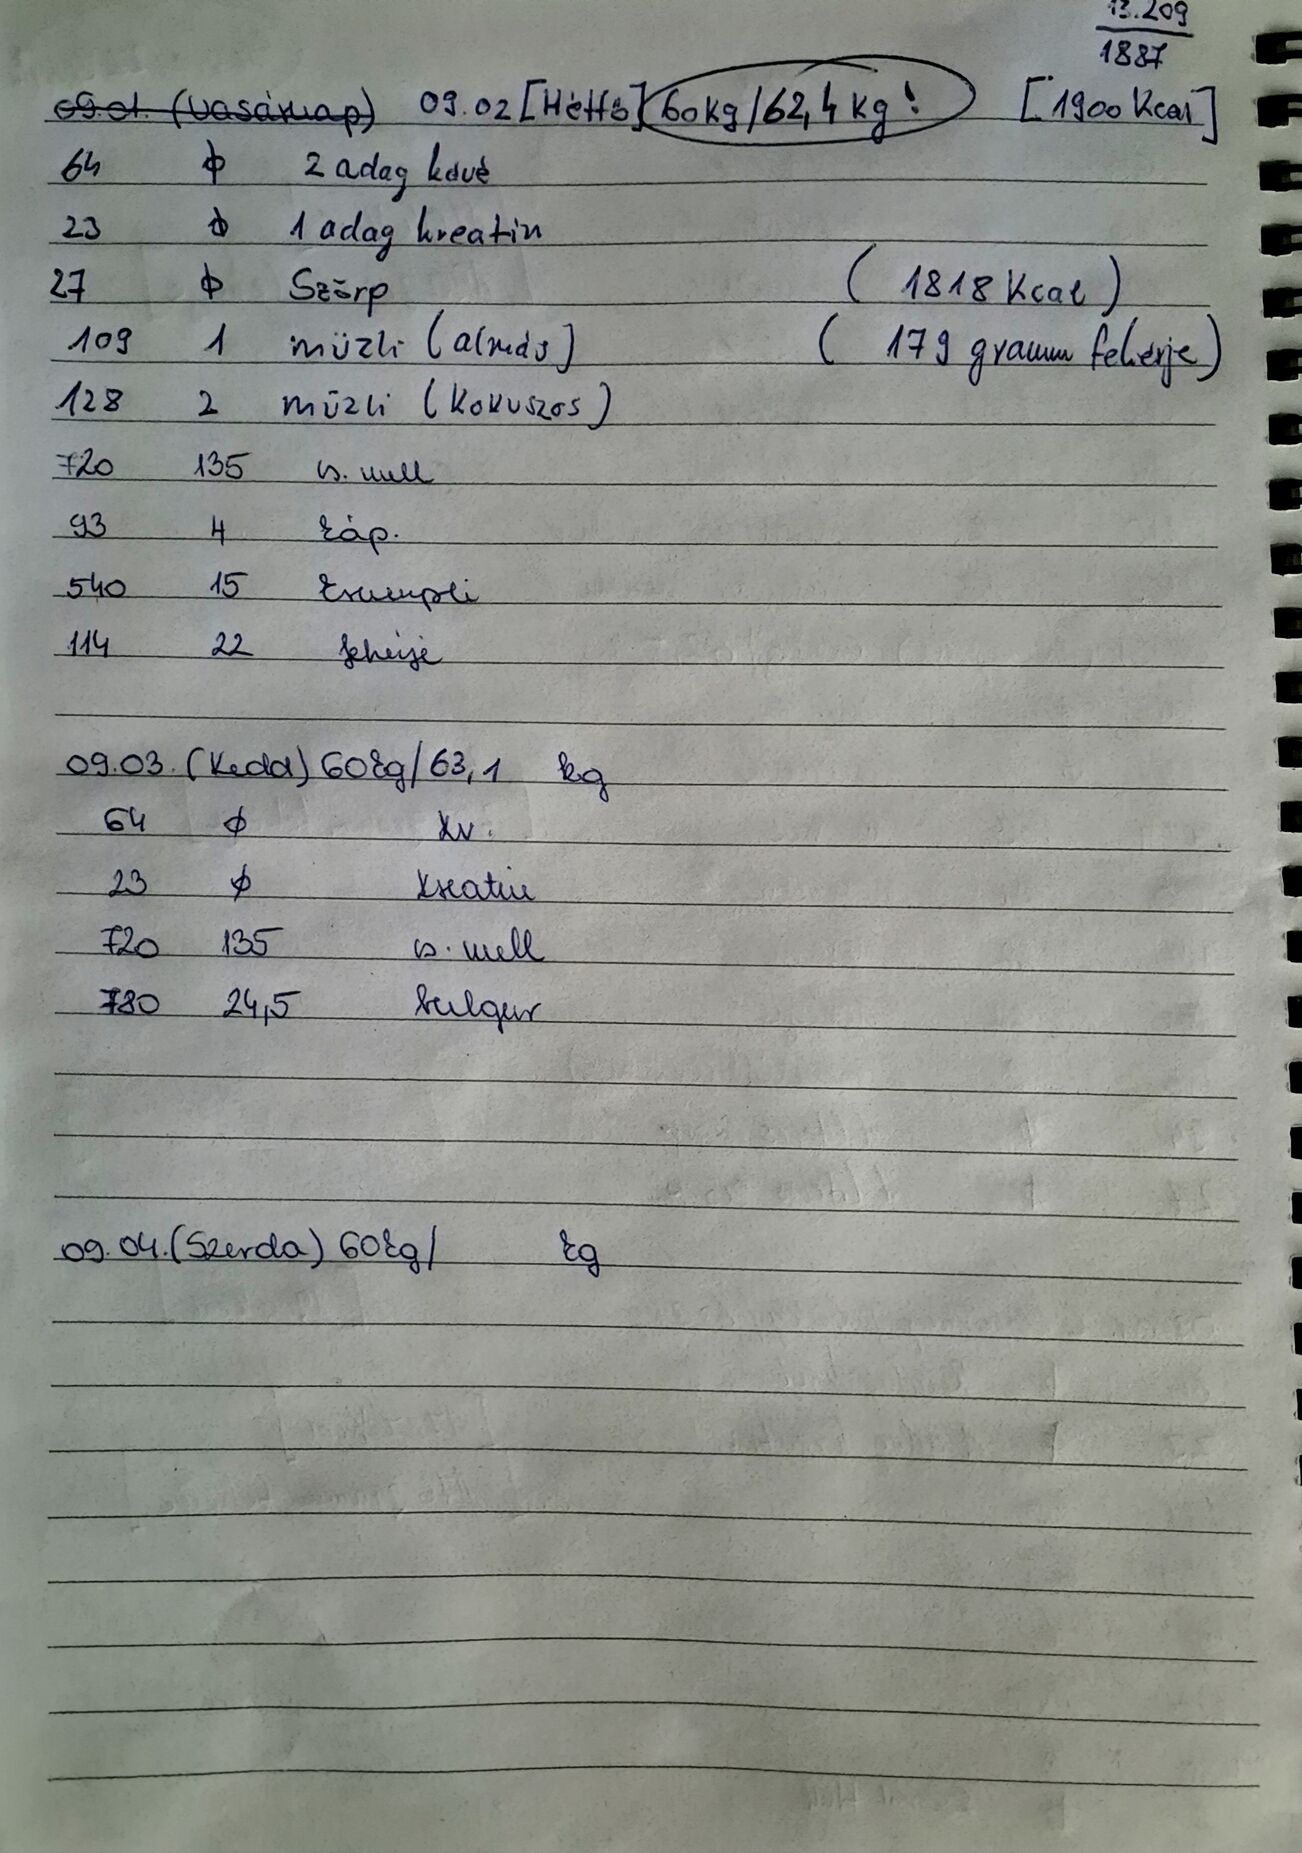 13.209
1887
09.01. (Vasárnap) 09.02 [Hétfő] 60kg/62,4 kg! [1900 Kcal]
64 ϕ 2 adag kávé
23 ϕ 1 adag kreatin
27 ϕ Szörp (1818 Kcal)
109 1 müzli (almás) (179 gramm fehérje)
128 2 müzli (kókuszos)
720 135 cs. mell
93 4 káp.
540 15 krumpli
114 22 fehérje
09.03. (Kedd) 60kg/63,1 kg
64 ϕ kv.
23 ϕ kreatin
720 135 cs. mell
780 24,5 bulgur
09.04. (Szerda) 60kg/ kg